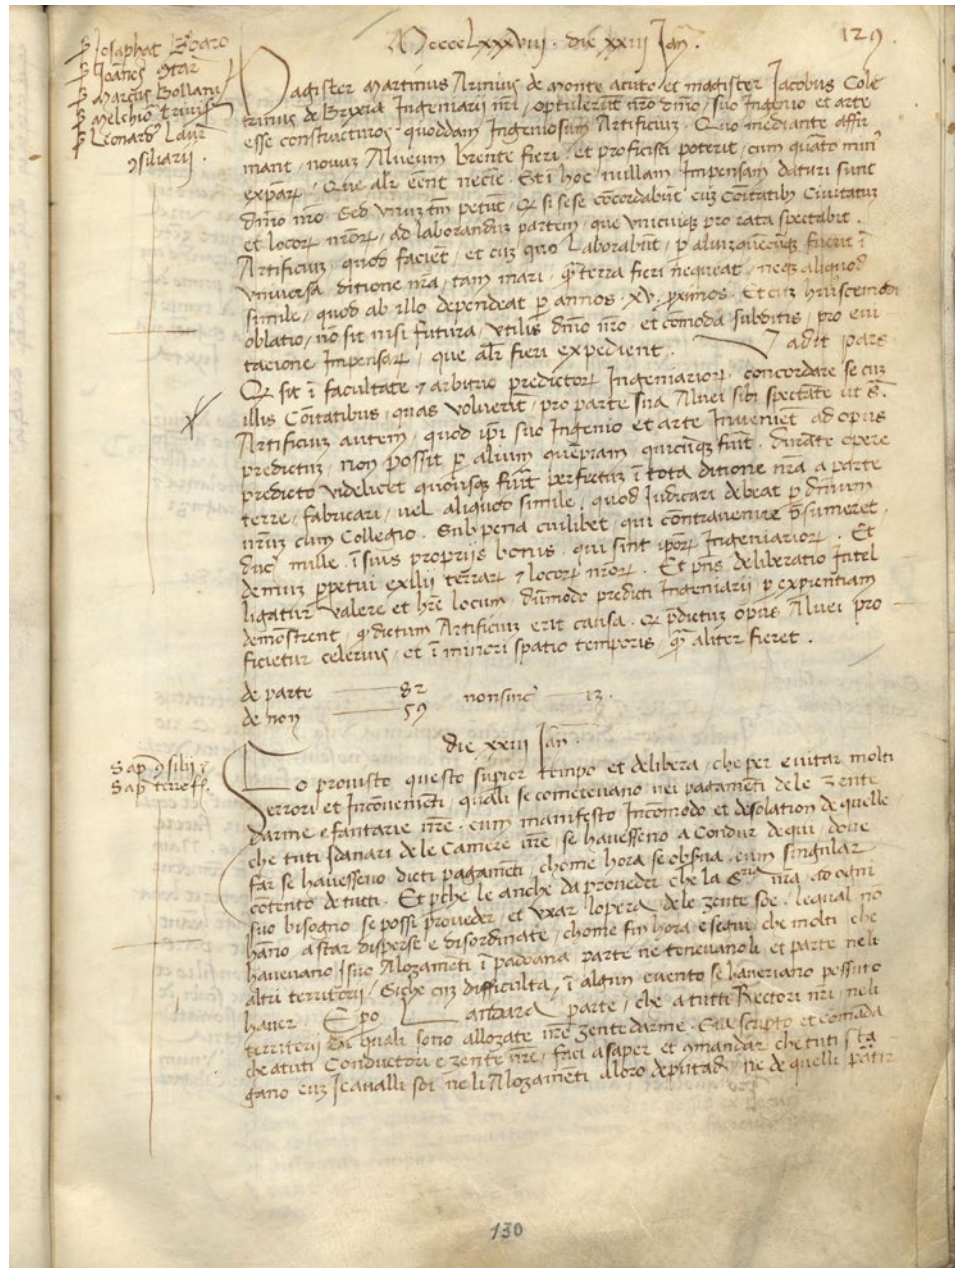 MccccLxxxviii. die xxiii Jañ.
129.
ƥ Josaphat Barbaro
ƥ Marcus Bollani
ƥ Melchio Trivisã
ƥ Leonard Laurẽ
ↄsiliarii.
Magister Martinus Arinius de monte acuto et magister Jacobus Cole
trinus de Brixia Ingeniarii nri, optulerũt nro dnio, suo Ingenio et arte
esse constructuros quoddam Ingeniosum Artificiuz. Quo mediante affir
mant, novuz Alveum brente fieri, et proficisci poterit, cum quãto min
expar, Que alr eent necie. Et ĩ hoc nullam Impensam daturi sunt
dnio nro. Sed unuz tm petũt, Q si sese concordabũt cuz coitatib civitatuz
et locor nror, ad laborandũ partem, que unicuiqz pro rata spectabit.
Artificiuz, quod facient, et cuz quo Laborabũt, p aliuz quecũqz fuerit ĩ
universa ditione nra, tam mari, q terra fieri nequeat, neqz aliquod
simile, quod ab illo dependeat p annos .xv. pximos. Et cuz huiuscemodi
oblatio, nõ sit nisi futura, utilis dnio nro, et comoda subditis, pro evi
tatione Impensar, que alr fieri expedient. Vadit pars
Q sit ĩ facultate ⁊ arbitrio predictor Ingeniarior, concordare se cuz
illis coitatibus, quas voluerit, pro parte sua Alvei sibi spectãte ut s.
Artificiuz autem, quod ipi suo Ingenio et arte Invenient ad opus
predictuz, non possit p alium quepiam, quicũqz fuit. durãte opere
predicto videlicet quousqz fuit perfectuz ĩ tota ditione nra a parte
terre, fabricari, vel aliquod simile, quod Iudicari debeat p dnium
nruz cum Collegio. Sub pena cuilibet, qui contravenire psumeret,
duc mille. ĩ suis proprijs bonis. qui sint ipor Ingeniarior. Et
demuz ppetui exilii terrar ⁊ locor nror. Et pns deliberatio Intel
ligatur valere et hre locum, dũmodo predicti Ingeniarii p expientiam
demostrent, q dictum Artificiuz erit causa. Q pdictuz opus Alvei pro
ficietur celerius, et ĩ minori spatio temporis, q aliter fieret.
de parte — 82 nonsinc — 13.
de non — 59
die xxiiii Jañ.
Sap ↄsilii ⁊
Sap terre f.
Lo provisto questo supior tempo et delibera, che per evitar molti
errori et Inconvenienti, quali se cometevano nei pagameti dele zente
darme e fantarie nre. cum manifesto Incomodo et desolation de quelle
che tuti i danari de le Camere nre, se havesseno a Condur de qui, dove
far se havesseno dicti pagameti, chome hora se observa. cum singular
cotento de tutti. Et pche le anche da proveder che la Sria nra, ad ogni
suo bisogno se possi proveder, et uxar lopera dele zente soe, lequal no
hano a star disperse e disordinate, chome fin hora e sequi, che molti che
havevano i suo Alozamẽti ĩ padoana parte ne tenevanoli et parte neli
altri territorij. Siche cuz difficulta, ĩ algun evento se haveriano possuto
haver. E po Landara parte, che a tutti Rectori nri, neli
territorij di quali sono allozate nre zente darme. Sia scripto et comada
che a tuti Conductori e zente nre, faci asaper et amandar che tuti sta
gano cuz i cavalli soi neli Alozamẽti aloro deputadi, ne de quelli patir
130